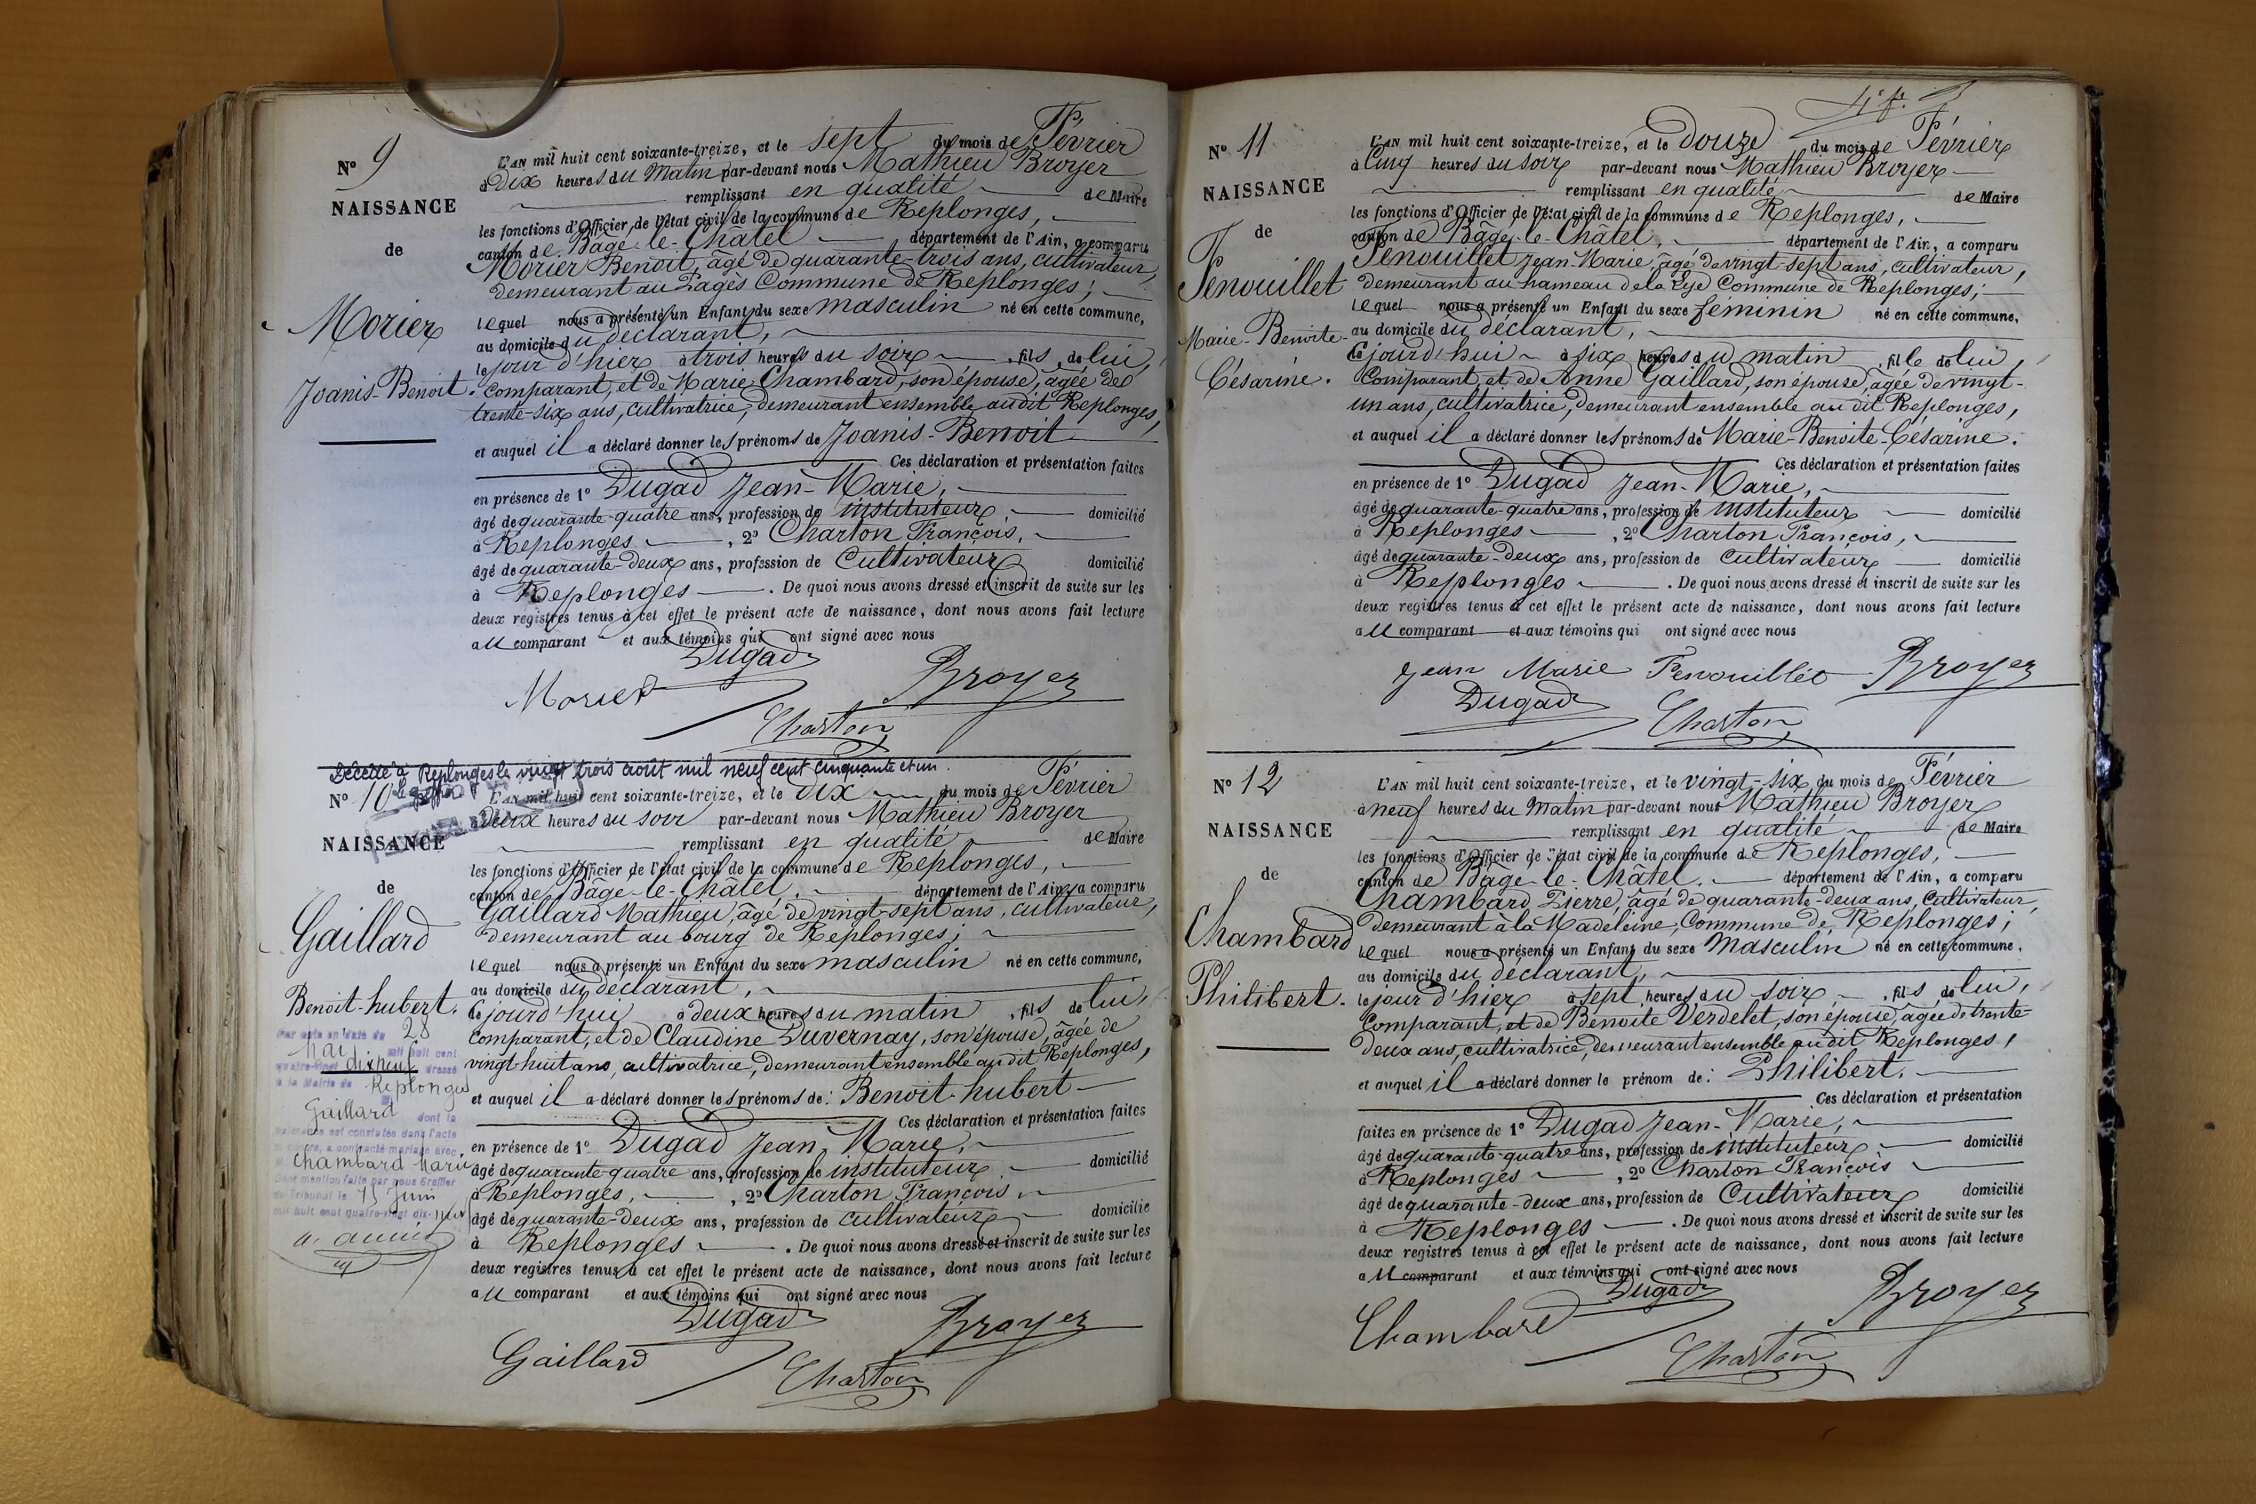 N° 9
NAISSANCE
de
Morier
Joanis-Benoit.
L'AN mil huit cent soixante-treize, et le sept du mois de Février
à Dix heures du Matin par-devant nous Mathieu Broyer
remplissant en qualité de Maire
les fonctions d'Officier de l'état civil de la commune de Replonges,
canton de Bâgé-le-Châtel département de l'Ain, a comparu
Morier Benoit, âgé de quarante-trois ans, cultivateur,
demeurant au Pagès Commune de Replonges;
lequel nous a présenté un Enfant du sexe masculin né en cette commune,
au domicile du déclarant,
le jour d'hier à trois heures du soir, fils de lui,
comparant, et de Marie Chambard, son épouse, âgée de
trente-six ans, cultivatrice, demeurant ensemble audit Replonges,
et auquel il a déclaré donner les prénoms de Joanis-Benoit
Ces déclaration et présentation faites
en présence de 1° Dugad Jean-Marie,
âgé de quarante-quatre ans, profession de instituteur domicilié
à Replonges, 2° Charton François,
âgé de quarante-deux ans, profession de Cultivateur domicilié
à Replonges. De quoi nous avons dressé et inscrit de suite sur les
deux registres tenus à cet effet le présent acte de naissance, dont nous avons fait lecture
au comparant et aux témoins qui ont signé avec nous
Dugad
Morier Broyer
Charton
Décédé à Replonges le vingt trois août mil neuf cent cinquante et un.
N° 10
NAISSANCE
de
Gaillard
Benoit-hubert.
Par acte en date du 28
Mai mil huit cent
quatre-vingt dix neuf dressé
à la Mairie de Replonges
Gaillard dont la
naissance est constatée dans l'acte
a contracté mariage avec
Chambard Marie
Mention faite par nous Greffier
du Tribunal le 15 Juin
mil huit cent quatre-vingt dix-neuf
L'AN mil huit cent soixante-treize, et le dix du mois de Février
à Deux heures du soir par-devant nous Mathieu Broyer
remplissant en qualité de Maire
les fonctions d'Officier de l'état civil de la commune de Replonges,
canton de Bâgé-le-Châtel, département de l'Ain, a comparu
Gaillard Mathieu, âgé de vingt-sept ans, cultivateur,
demeurant au bourg de Replonges;
lequel nous a présenté un Enfant du sexe masculin né en cette commune,
au domicile du déclarant,
cejourd'hui à deux heures du matin, fils de lui,
comparant, et de Claudine Duvernay, son épouse, âgée de
vingt-huit ans, cultivatrice, demeurant ensemble audit Replonges,
et auquel il a déclaré donner les prénoms de: Benoit-hubert
Ces déclaration et présentation faites
en présence de 1° Dugad Jean-Marie,
âgé de quarante-quatre ans, profession de instituteur, domicilié
à Replonges, 2° Charton François,
âgé de quarante-deux ans, profession de cultivateur domicilié
à Replonges. De quoi nous avons dressé et inscrit de suite sur les
deux registres tenus à cet effet le présent acte de naissance, dont nous avons fait lecture
au comparant et aux témoins qui ont signé avec nous
Dugad
Gaillard Broyer
Charton
N° 11
NAISSANCE
de
Fenouillet
Marie-Benoite-
Césarine.
L'AN mil huit cent soixante-treize, et le douze du mois de Février
à Cinq heures du soir par-devant nous Mathieu Broyer
remplissant en qualité de Maire
les fonctions d'Officier de l'état civil de la commune de Replonges,
canton de Bâgé-le-Châtel, département de l'Ain, a comparu
Fenouillet Jean-Marie, âgé de vingt-sept ans, cultivateur,
demeurant au hameau de la Lye Commune de Replonges;
lequel nous a présenté un Enfant du sexe féminin né en cette commune,
au domicile du déclarant,
cejourd'hui à six heures du matin, fille de lui,
comparant, et de Anne Gaillard, son épouse, âgée de vingt-
un ans, cultivatrice, demeurant ensemble au dit Replonges,
et auquel il a déclaré donner les prénoms de Marie-Benoite-Césarine.
Ces déclaration et présentation faites
en présence de 1° Dugad Jean-Marie,
âgé de quarante-quatre ans, profession de instituteur domicilié
à Replonges, 2° Charton François,
âgé de quarante-deux ans, profession de cultivateur domicilié
à Replonges. De quoi nous avons dressé et inscrit de suite sur les
deux registres tenus à cet effet le présent acte de naissance, dont nous avons fait lecture
au comparant et aux témoins qui ont signé avec nous
Jean Marie Fenouillet Broyer
Dugad Charton
N° 12
NAISSANCE
de
Chambard
Philibert.
L'AN mil huit cent soixante-treize, et le vingt-six du mois de Février
à neuf heures du Matin par-devant nous Mathieu Broyer
remplissant en qualité de Maire
les fonctions d'Officier de l'état civil de la commune de Replonges,
canton de Bâgé-le-Châtel. département de l'Ain, a comparu
Chambard Pierre, âgé de quarante-deux ans, Cultivateur,
demeurant à la Madeleine, Commune de Replonges;
lequel nous a présenté un Enfant du sexe Masculin né en cette commune,
au domicile du déclarant,
le jour d'hier à sept heures du soir, fils de lui,
Comparant, et de Benoite Verdelet, son épouse, âgée de trente-
deux ans, cultivatrice, demeurant ensemble audit Replonges,
et auquel il a déclaré donner le prénom de: Philibert.
Ces déclaration et présentation
faites en présence de 1° Dugad Jean-Marie,
âgé de quarante-quatre ans, profession de instituteur domicilié
à Replonges, 2° Charton François
âgé de quarante-deux ans, profession de Cultivateur domicilié
à Replonges. De quoi nous avons dressé et inscrit de suite sur les
deux registres tenus à cet effet le présent acte de naissance, dont nous avons fait lecture
au comparant et aux témoins qui ont signé avec nous
Dugad
Chambard Broyer
Charton